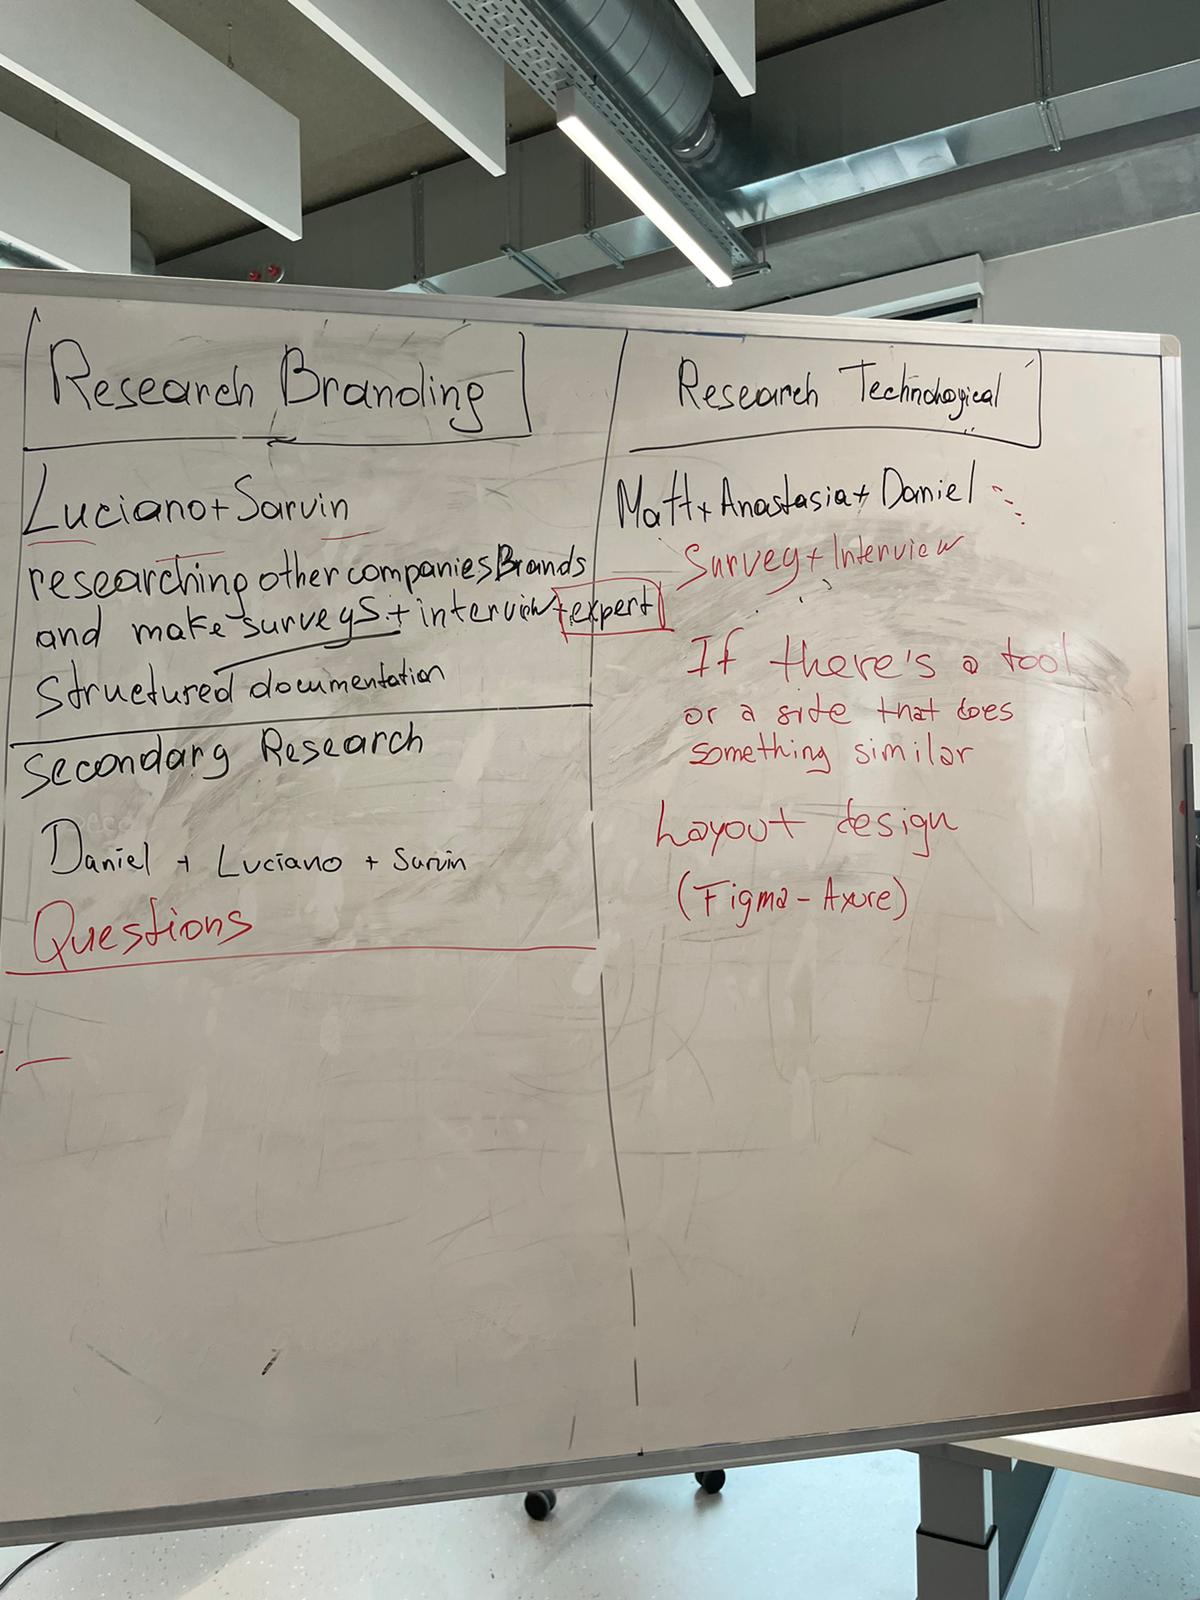 Research Branding
Luciano+Sarvin
researching other companies Brands
and make surveys + interview + expert
Structured documentation
Secondary Research
Daniel + Luciano + Sarvin
Questions
Research Technological
Matt + Anastasia + Daniel
Survey + Interview
If there's a tool
or a side that does
something similar
Layout design
(Figma - Axure)